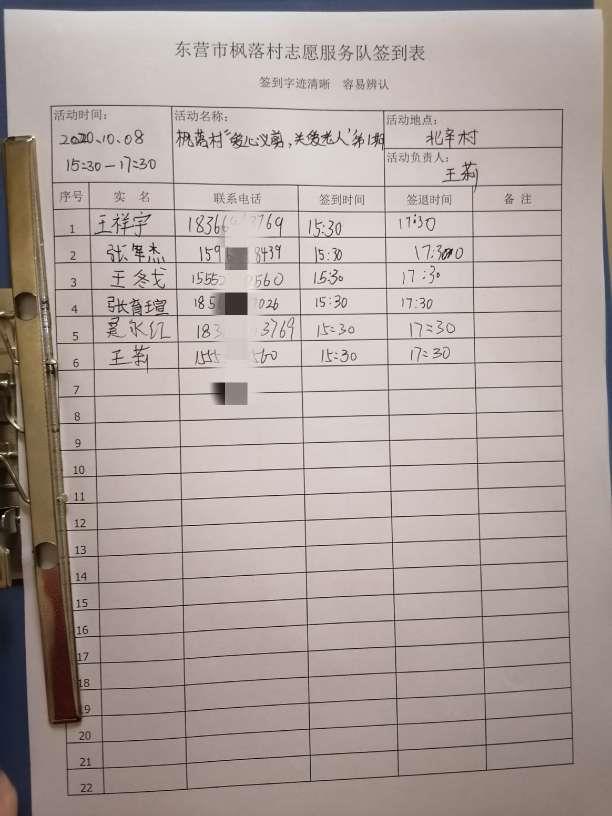 东营市枫落村志愿服务队签到表
签到字迹清晰 容易辨认
活动时间: 活动名称: 活动地点:
2020.10.08 枫落村“爱心义剪,关爱老人”第1期 北辛村
15:30—17:30 活动负责人:
王莉
序号 实 名 联系电话 签到时间 签退时间 备 注
1 王祥宇 18366 3769 15:30 17:30
2 159 8439 15:30 17:30
3 王冬戈 15552 0560 15:30 17:30
4 张育瑄 185 2026 15:30 17:30
5 183 3769 15:30 17:30
6 王莉 1555 560 15:30 17:30
7
8
9
10
11
12
13
14
15
16
17
18
19
20
21
22